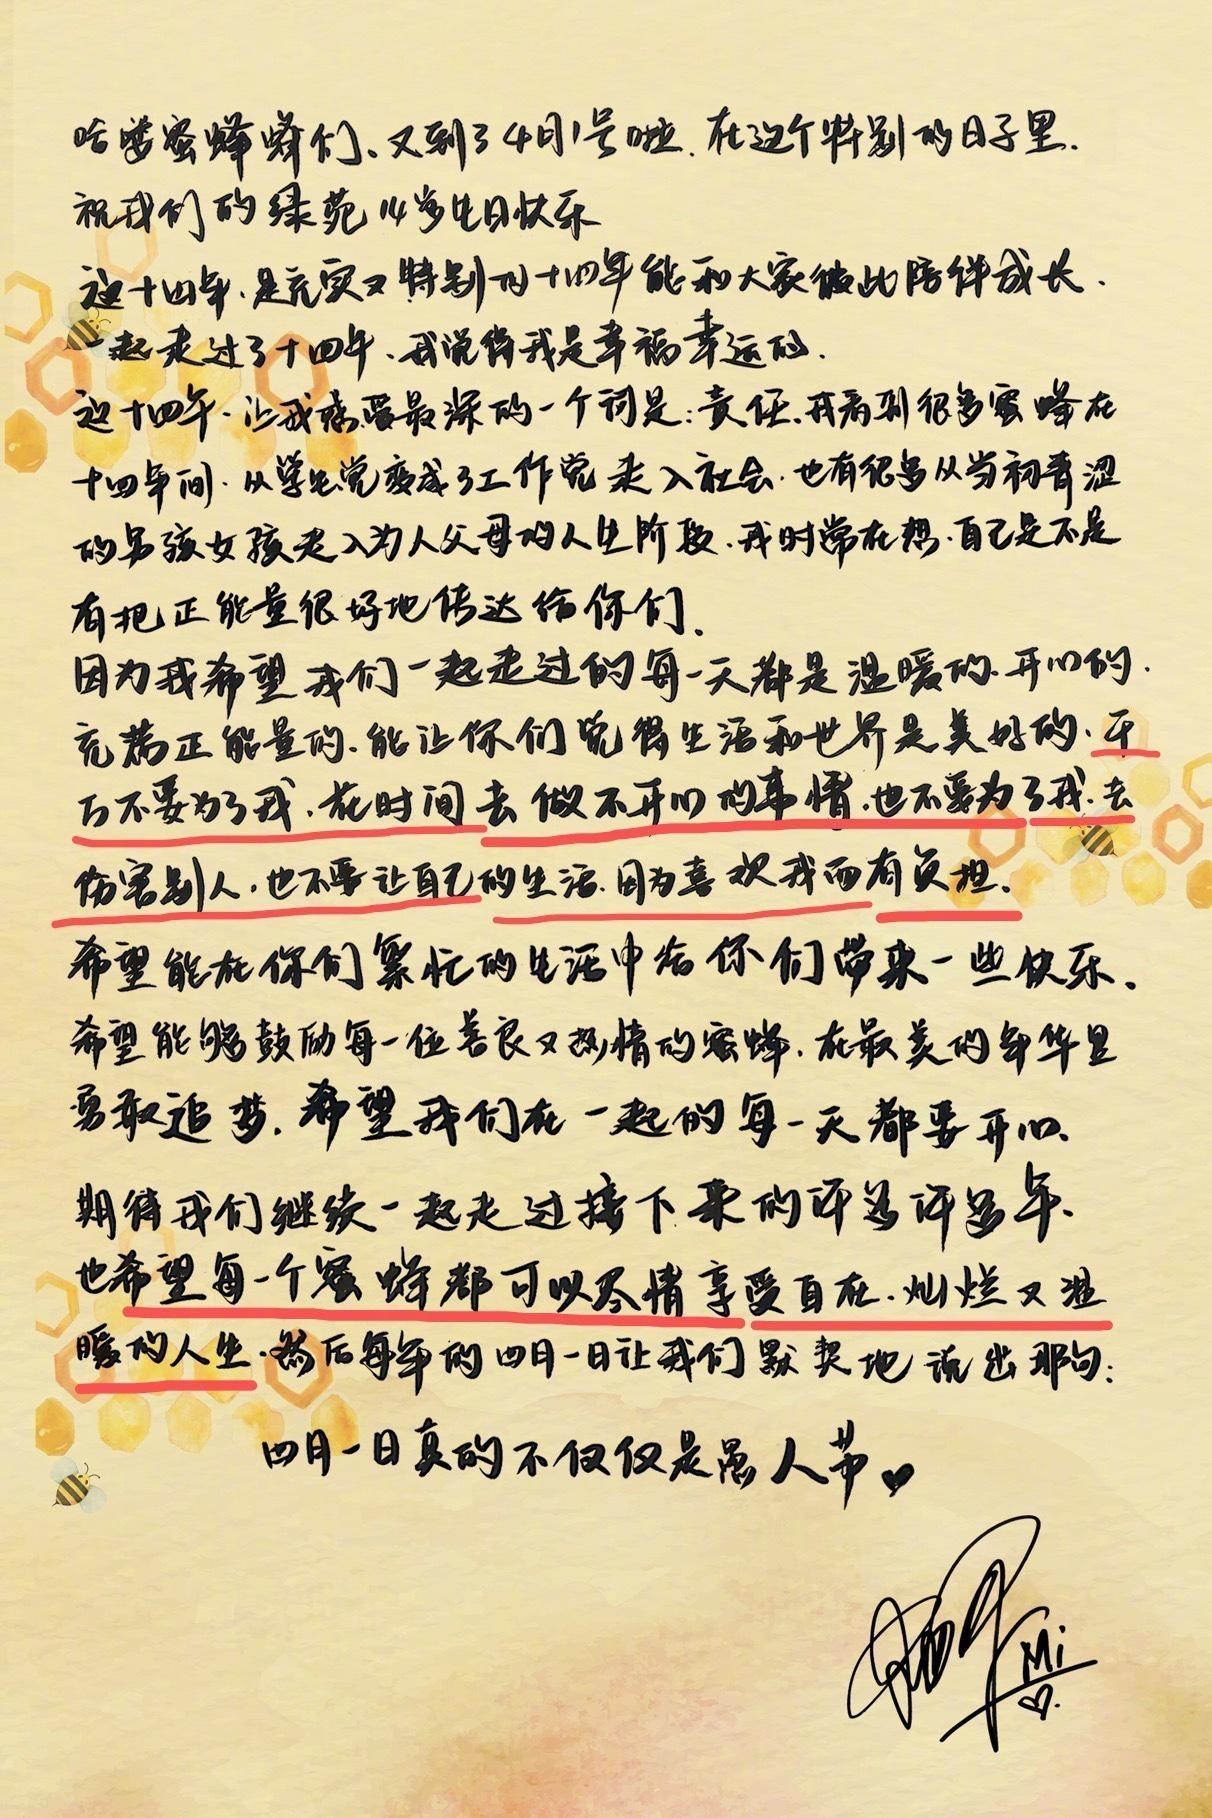 哈喽蜜蜂蜂们、又到了4月1号啦.在这个特别的日子里.
祝我们的绿苑14岁生日快乐
这十四年.是充实又特别的十四年能和大家彼此陪伴成长.
一起走过了十四年、我觉得我是幸福幸运的.
这十四年.让我感受最深的一个词是:责任、我看到很多蜜蜂在
十四年间.从学生党变成了工作党走入社会.也有很多从当初青涩
的男孩女孩走入为人父母的人生阶段.我时常在想.自己是不是
有把正能量很好地传达给你们.
因为我希望我们一起走过的每一天都是温暖的.开心的.
充满正能量的.能让你们觉得生活和世界是美好的.千
万不要为了我.花时间去做不开心的事情.也不要为了我.去
伤害别人.也不要让自己的生活.因为喜欢我而有负担.
希望能在你们繁忙的生活中给你们带来一些快乐.
希望能够鼓励每一位善良又热情的蜜蜂.在最美的年华里
勇敢追梦.希望我们在一起的每一天都要开心、
期待我们继续一起走过接下来的许多许多年、
也希望每一个蜜蜂都可以尽情享受自在.灿烂又温
暖的人生.然后每年的四月一日让我们默契地说出那句:
四月一日真的不仅仅是愚人节♥
Mi